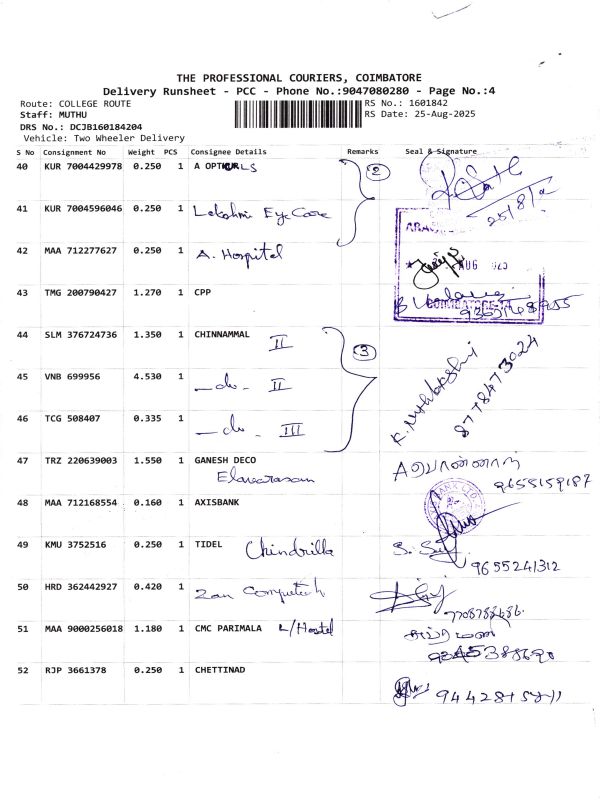 THE PROFESSIONAL COURIERS, COIMBATORE
Delivery Runsheet - PCC - Phone No.:9047080280 - Page No.:4
Route: COLLEGE ROUTE RS No.: 1601842
Staff: MUTHU RS Date: 25-Aug-2025
DRS No.: DCJB160184204
Vehicle: Two Wheeler Delivery
S No Consignment No Weight PCS Consignee Details Remarks Seal & Signature
40 KUR 7004429978 0.250 1 A OPTICALS 2
25/8/2
41 KUR 7004596046 0.250 1 Lekshmi Eye Care
42 MAA 712277627 0.250 1 A. Hospital
AUG
43 TMG 200790427 1.270 1 CPP
44 SLM 376724736 1.350 1 CHINNAMMAL II 3
45 VNB 699956 4.530 1 —do— II
8778473024
46 TCG 508407 0.335 1 —do— III
47 TRZ 220639003 1.550 1 GANESH DECO
Elavarasan 9655159187
48 MAA 712168554 0.160 1 AXISBANK
49 KMU 3752516 0.250 1 TIDEL Chindrilla
9655241312
50 HRD 362442927 0.420 1 Zan Computech
51 MAA 9000256018 1.180 1 CMC PARIMALA L/Hostel
52 RJP 3661378 0.250 1 CHETTINAD